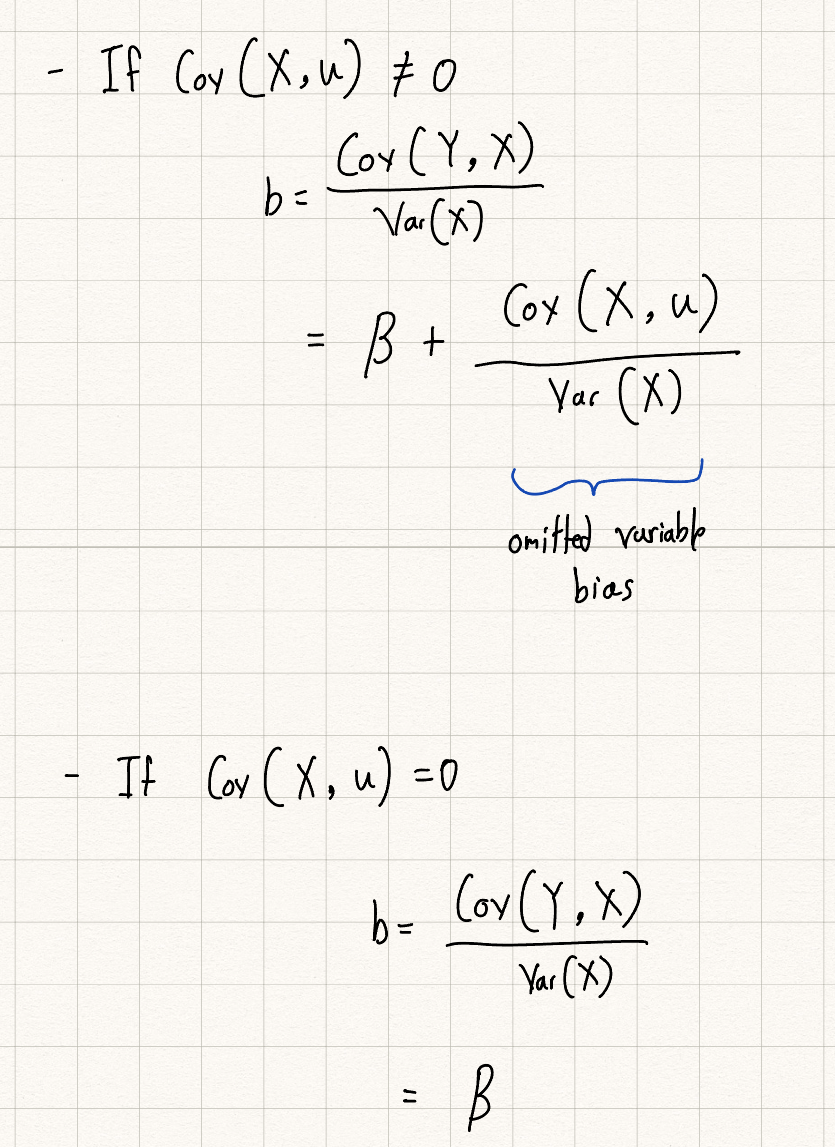 - If Cov(X,u) ≠ 0
b = Cov(Y,X) / Var(X)
= β + Cov(X,u) / Var(X)
omitted variable
bias
- If Cov(X,u) = 0
b = Cov(Y,X) / Var(X)
= β